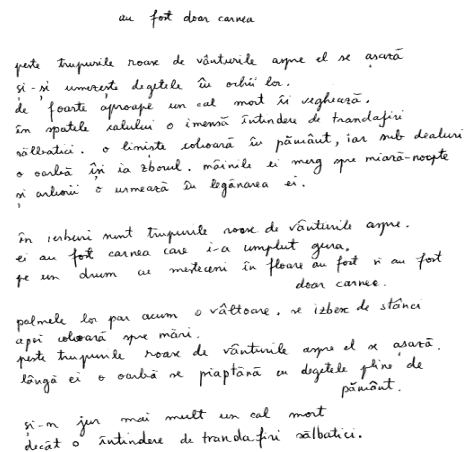 au fost doar carnea
peste trupurile roase de vânturile aspre el se așază
și-și umezește degetele în ochii lor.
de foarte aproape un cal mort îi veghează.
în spatele calului o imensă întindere de trandafiri
sălbatici. o liniște coboară în pământ, iar sub dealuri
o oarbă își ia zborul. mâinile ei merg spre miază-noapte
și arborii o urmează în legănarea ei.
în ierburi sunt trupurile roase de vânturile aspre.
ei au fost carnea care i-a umplut gura.
pe un drum cu mesteceni în floare au fost și au fost
doar carnee.
palmele lor par acum o vâltoare. se izbesc de stânci
apoi coboară spre mări.
peste trupurile roase de vânturile aspre el se așază.
lângă ei o oarbă se piaptănă cu degetele pline de
pământ.
și-n jur mai mult un cal mort
decât o întindere de trandafiri sălbatici.